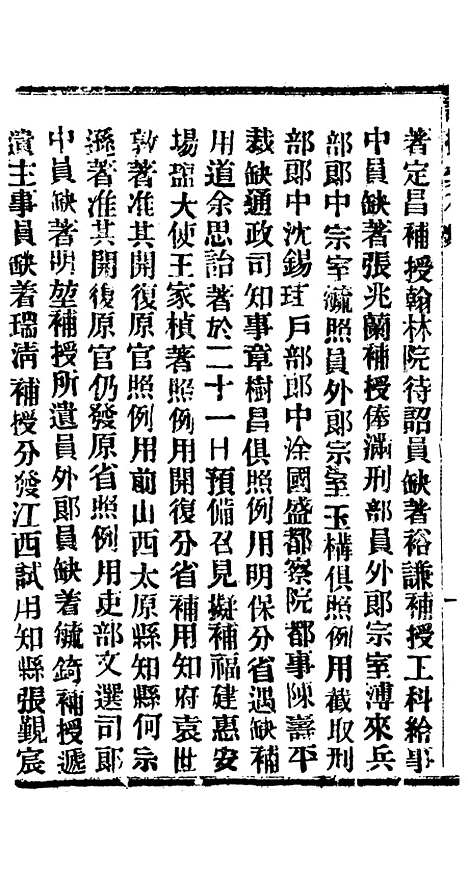 著定昌補授翰林院待詔員缺著裕謙補授工科給事
中員缺著張兆蘭補授俸滿刑部員外郎宗室溥來兵
部郎中宗室毓照員外郎宗室玉構俱照例用截取刑
部郎中沈錫珪戶部郎中涂國盛都察院都事陳壽平
裁缺通政司知事章樹昌俱照例用明保分省遇缺補
用道余思詒著於二十一日預備召見擬補福建惠安
場鹽大使王家楨著照例用開復分省補用知府袁世
敦著准其開復原官照例用前山西太原縣知縣何宗
遜著准其開復原官仍發原省照例用吏部文選司郎
中員缺著明堃補授所遺員外郎員缺着毓錡補授遞
遺主事員缺着瑞清補授分發江西試用知縣張覲宸